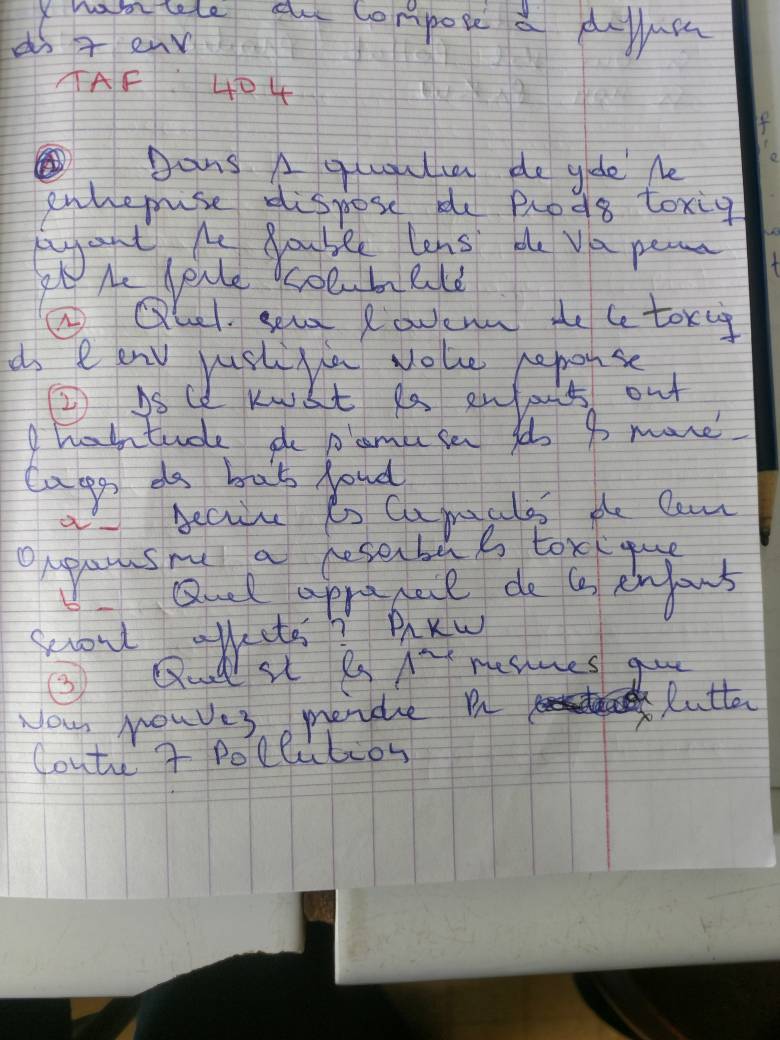 l'habileté du composé à diffuser
ds 7 env
TAF : 404
Dans 1 quartier de ydé 1e
entreprise dispose de Prod8 toxiq
ayant 1e faible tens° de Vapeur
et 1e forte solubilité
1 Quel. sera l'avenir de ce toxiq
ds l'env justifier votre reponse
2 Ds ce kwat les enfants ont
l'habitude de s'amuser ds ls maré-
cages des bats fond
a - Decrire ls Capacités de leur
Organisme a resorber ls toxique
b - Quel appareil de ces enfants
seront affectés ? PrKW
3 Quel st les 1ère mesures que
vous pouvez prendre Pr lutter
Contre 7 Pollution